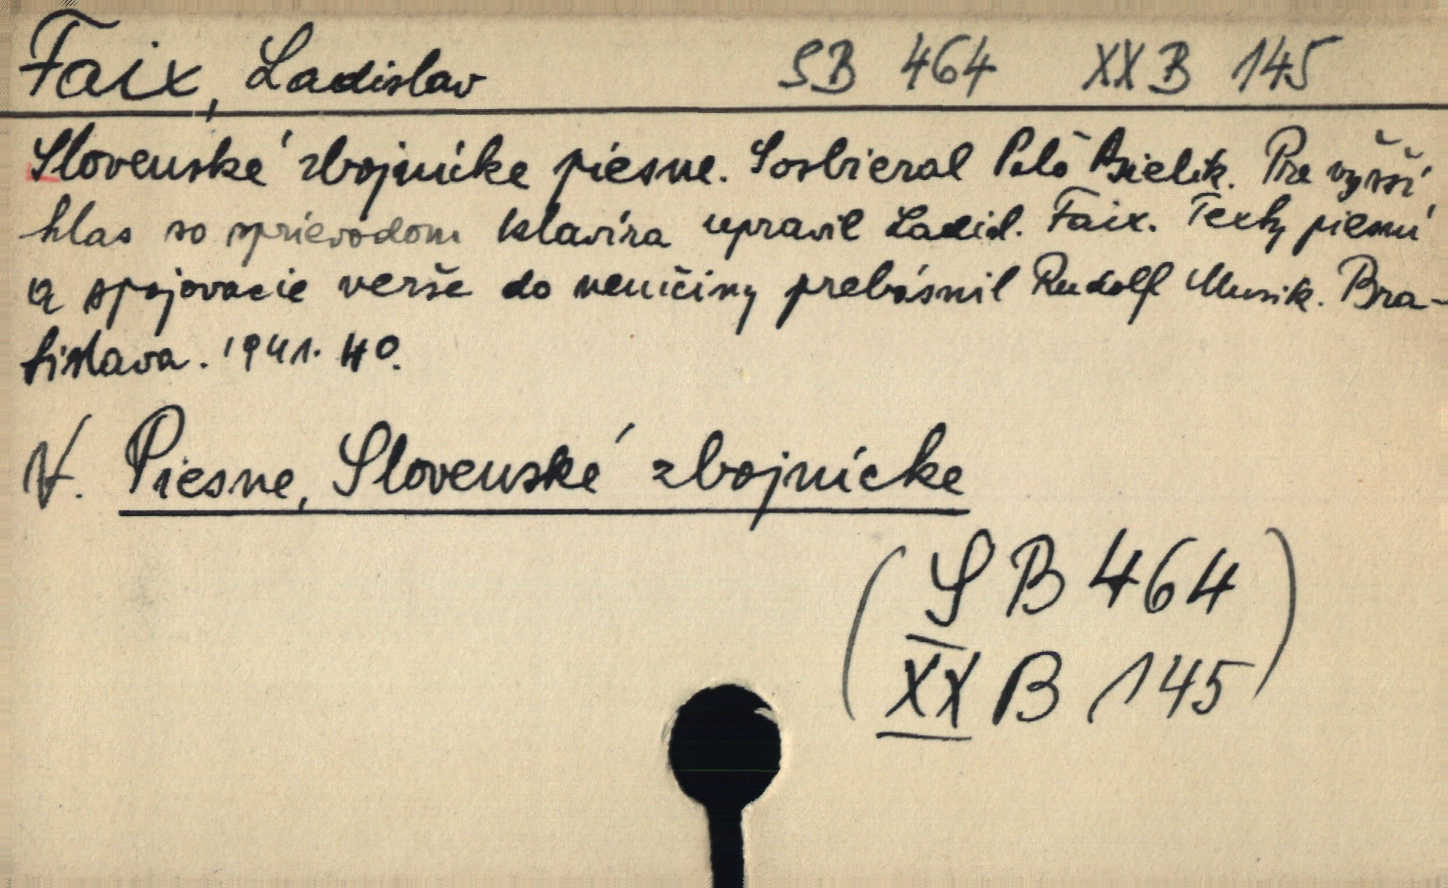 Faix, Ladislav SB 464 XX B 145
Slovenské zbojnícke piesne. Sosbieral Paľo Bielik. Pre vyšší
hlas so sprievodom klavíra upravil Ladisl. Faix. Texty piesní
a spojovacie verše do nemčiny prebásnil Rudolf Musik. Bra-
tislava. 1941. 4°.
V. Piesne, Slovenské zbojnícke
(SB 464
XX B 145)